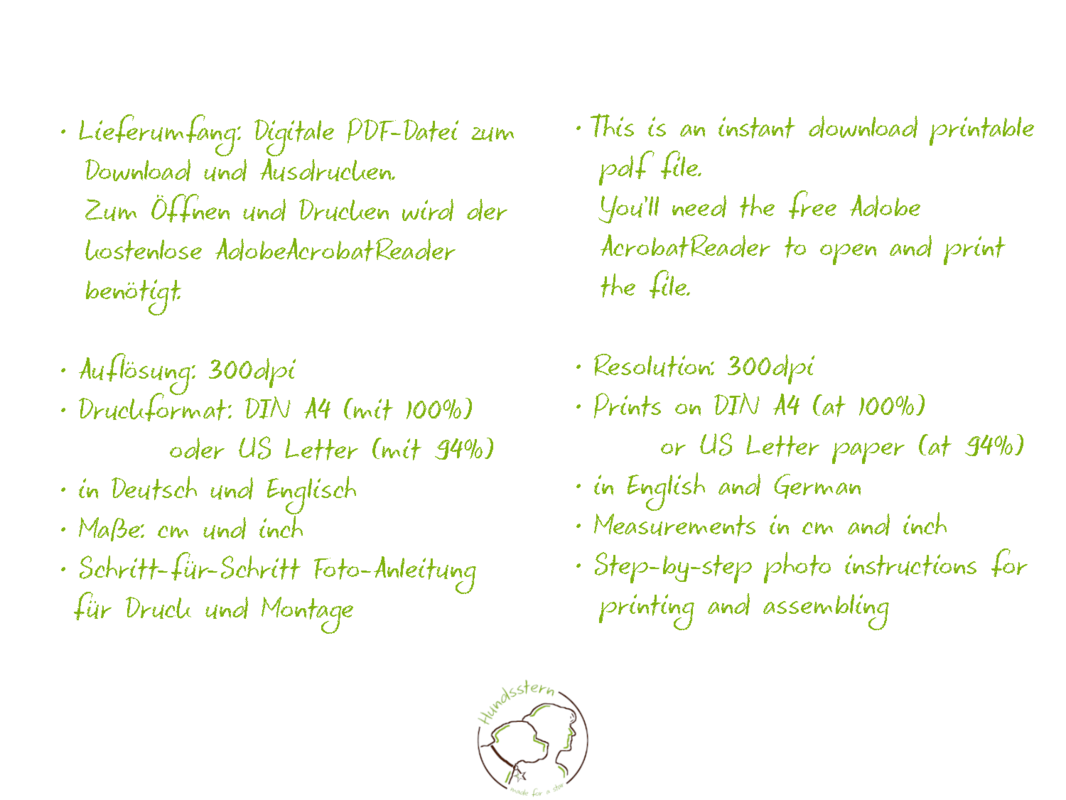 • Lieferumfang: Digitale PDF-Datei zum
Download und Ausdrucken.
Zum Öffnen und Drucken wird der
kostenlose AdobeAcrobatReader
benötigt.
• Auflösung: 300dpi
• Druckformat: DIN A4 (mit 100%)
oder US Letter (mit 94%)
• in Deutsch und Englisch
• Maße: cm und inch
• Schritt-für-Schritt Foto-Anleitung
für Druck und Montage
• This is an instant download printable
pdf file.
You'll need the free Adobe
AcrobatReader to open and print
the file.
• Resolution: 300dpi
• Prints on DIN A4 (at 100%)
or US Letter paper (at 94%)
• in English and German
• Measurements in cm and inch
• Step-by-step photo instructions for
printing and assembling
Hundsstern
made for a star